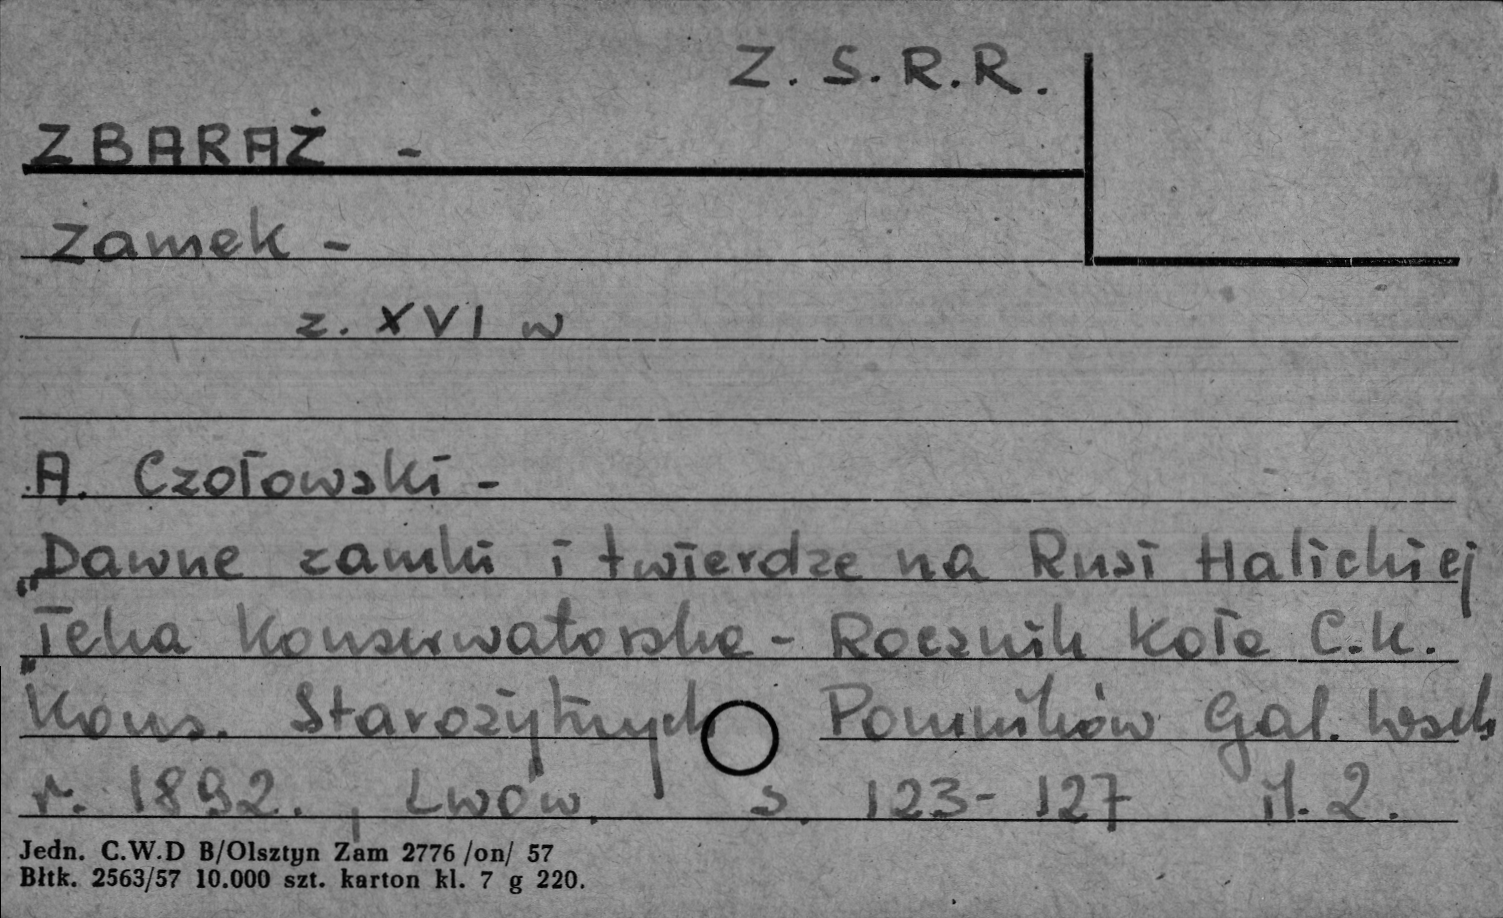 Z. S. R. R.
ZBARAŻ -
Zamek -
z. XVI w
A. Czołowski -
„Dawne zamki i twierdze na Rusi Halickiej
„Teka Konserwatorska - Rocznik Koła C.K.
Kons. Starożytnych Pomników Gal. Wsch
r. 1892., Lwów, s. 123-127 il. 2.
Jedn. C.W.D B/Olsztyn Zam 2776 /on/ 57
Błtk. 2563/57 10.000 szt. karton kl. 7 g 220.